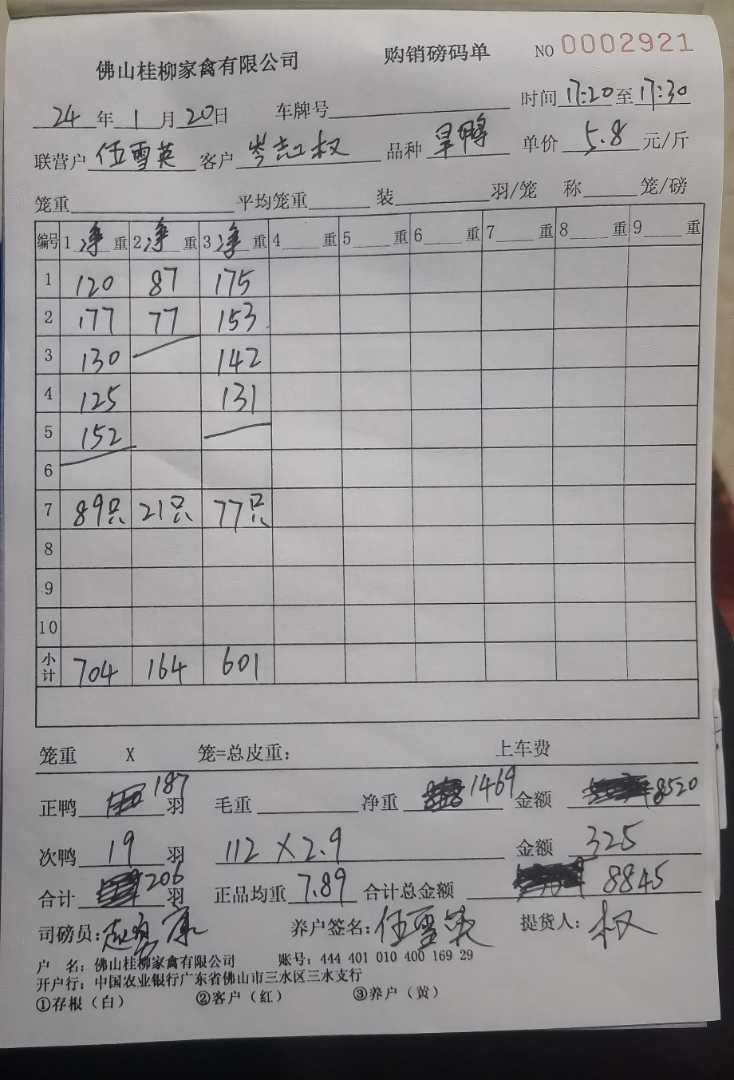 佛山桂柳家禽有限公司 购销磅码单 NO 0002921
24年1月20日 车牌号 时间17:20至17:30
联营户 伍雪英 客户 岑志权 品种 旱鸭 单价 5.8 元/斤
笼重 平均笼重 装 羽/笼 称 笼/磅
编号 1净重 2净重 3净重 4 重 5 重 6 重 7 重 8 重 9 重
1 120 87 175
2 177 77 153
3 130 142
4 125 131
5 152
6
7 89只 21只 77只
8
9
10
小计 704 164 601
笼重 X 笼=总皮重: 上车费
正鸭 187 羽 毛重 净重 1469 金额 8520
次鸭 19 羽 112×2.9 金额 325
合计 206 羽 正品均重 7.89 合计总金额 8845
司磅员: 养户签名:伍雪英 提货人:权
户 名:佛山桂柳家禽有限公司 账号:444 401 010 400 169 29
开户行:中国农业银行广东省佛山市三水区三水支行
①存根(白) ②客户(红) ③养户(黄)